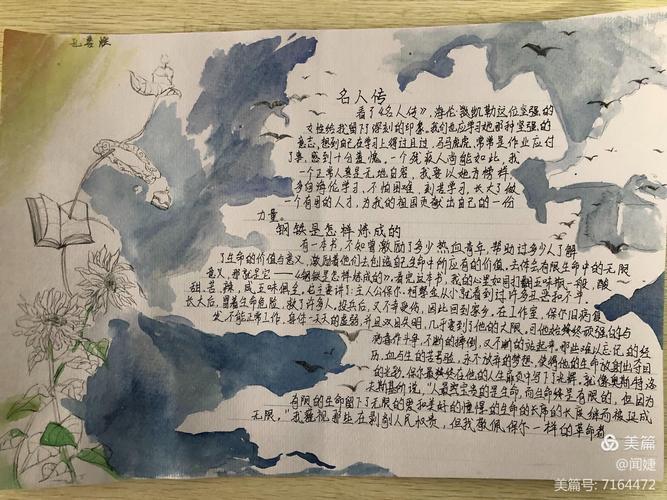 名人传
看了《名人传》，海伦·凯勒这位坚强的
女性给我留下了深刻的印象。我们也应学习她那种坚强的
意志，想到自己在学习上得过且过，马马虎虎，常常是作业应付
了事，感到十分羞愧。一个残疾人尚能如此，我
一个正常人真是无地自容，我要以她为榜样
多向海伦学习，不怕困难，刻苦学习，长大了做
一个有用的人才，为我的祖国贡献出自己的一份
力量。
钢铁是怎样炼成的
有一本书，不知曾激励了多少热血青年，帮助过多少人了解
了生命的价值与意义，激励着他们去创造生命中所应有的价值，去伴矣有限生命中的无限
意义，那就是它——《钢铁是怎样炼成的》，看完这本书，我的心里如同打翻五味瓶一般，酸
甜苦辣，咸五味俱全。
长大后，冒着生命危险，救了许多人，投兵后，又不幸受伤，因此回到家乡，在工作室，保尔旧病复
发，不能正常工作，身体一天天的虚弱，并且双目失明，几乎看到了他的大限，可他始终顽强的与
病毒作斗争，不断的摔倒，又不断的站起来。那些难以忘记的经
历，血与生的苦考验，永不放弃的梦想，使得他的生命放射出夺目
的光彩，保尔最终在他的人生篇史中写下了光辉，就像奥斯特洛
夫斯基所说，“人最宝贵的是生命，而生命终是有限的，但因为
有限的生命留下了无限的爱和美好的憧憬的生命的长度的长度继而被延成
无限，”我蔑视那些在剥削人民权贵，但我敬佩保尔一样的革命者
美篇
@闻婕
美篇号：7164472